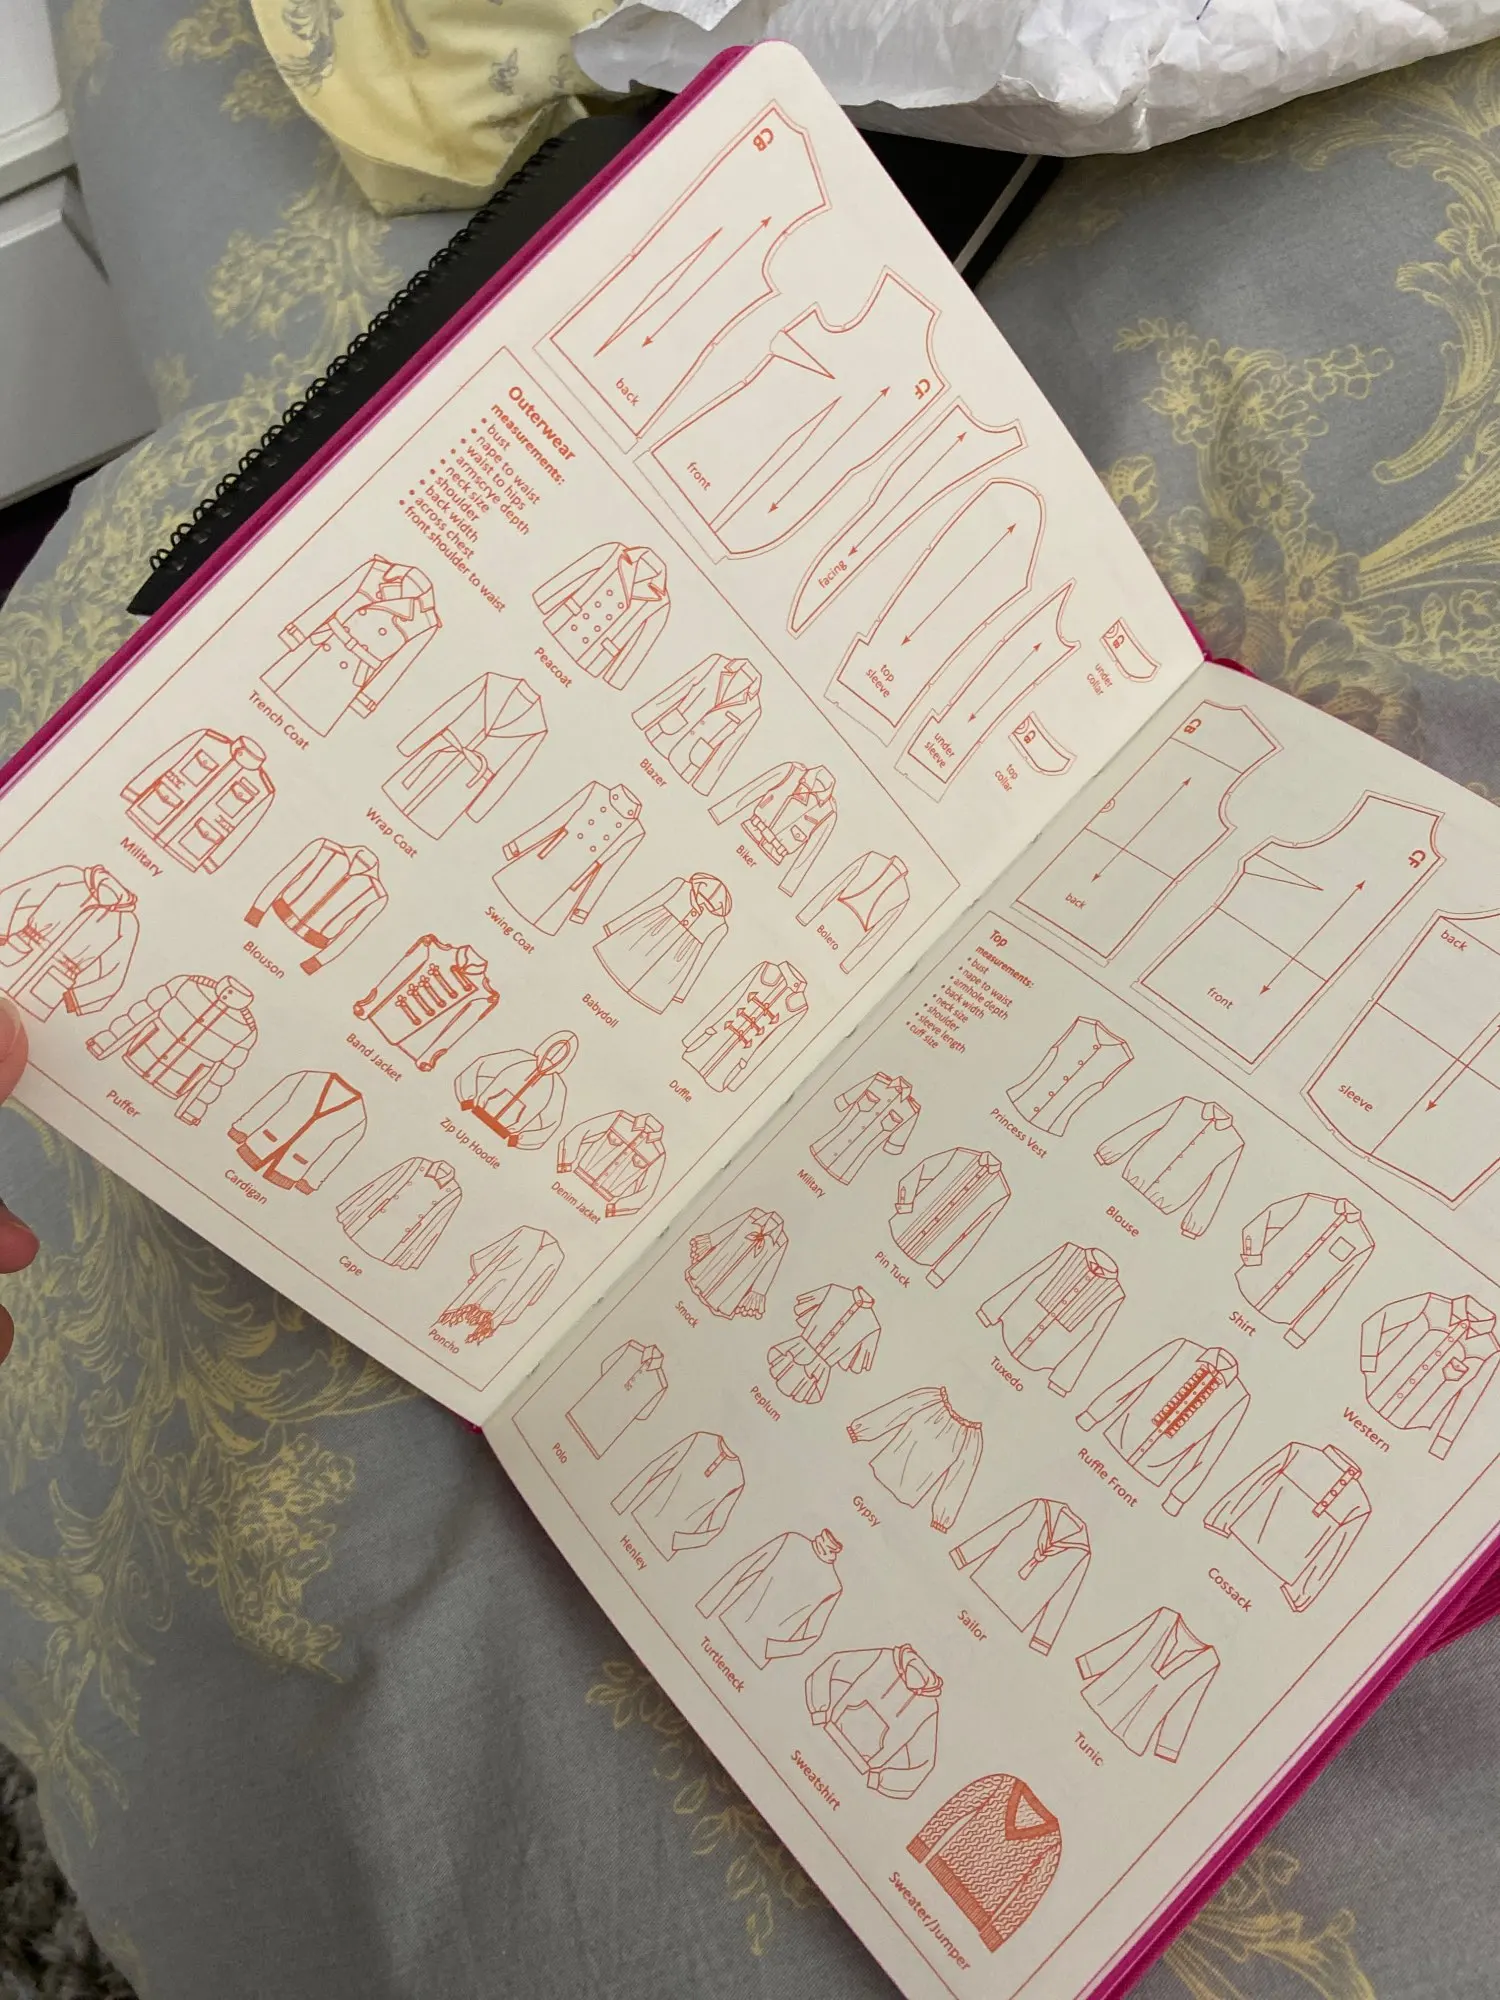 CB
back
CF
front
facing
top
sleeve
under
sleeve
under
collar
top
collar
Outerwear
measurements:
• bust
• nape to waist
• waist to hips
• armscrye depth
• neck size
• shoulder
• back width
• across chest
• front shoulder to waist
Trench Coat
Peacoat
Military
Wrap Coat
Blazer
Blouson
Swing Coat
Biker
Puffer
Band Jacket
Babydoll
Bolero
Cardigan
Zip Up Hoodie
Duffle
Cape
Denim Jacket
Poncho
CB
back
CF
front
back
sleeve
Top
measurements:
• bust
• nape to waist
• armhole depth
• back width
• neck size
• shoulder
• sleeve length
• cuff size
Princess Vest
Military
Blouse
Pin Tuck
Shirt
Smock
Tuxedo
Western
Peplum
Ruffle Front
Polo
Gypsy
Cossack
Henley
Sailor
Turtleneck
Tunic
Sweatshirt
Sweater/Jumper